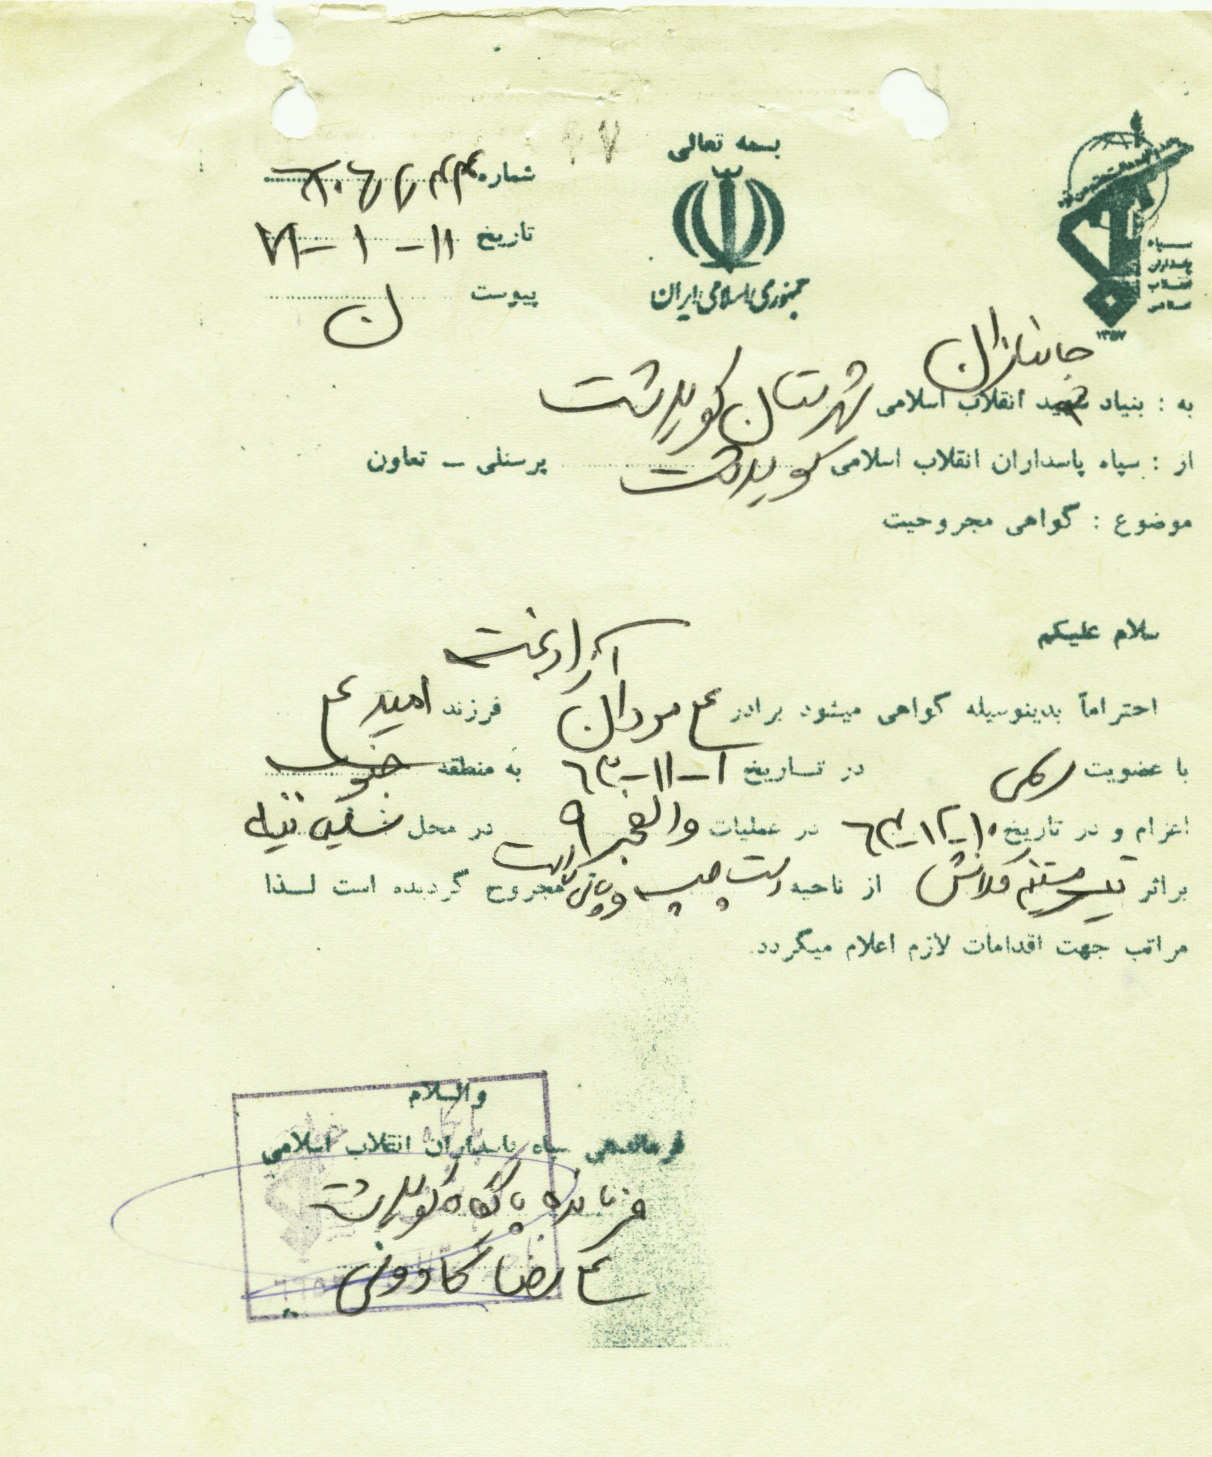 بسمه تعالی
جمهوری اسلامی ایران
سپاه
پاسداران
انقلاب
اسلامی
۱۳۵۷
شماره
تاریخ ۱۱-۱-۷۱
پیوست ن
جانبازان
به : بنیاد شهید انقلاب اسلامی شهرستان کویردشت
از : سپاه پاسداران انقلاب اسلامی کویردشت پرسنلی - تعاون
موضوع : گواهی مجروحیت
سلام علیکم
آزادبخت
احتراماً بدینوسیله گواهی میشود برادر علیمردان فرزند امیدعلی
با عضویت رسمی در تاریخ ۱-۱۱-۶۳ به منطقه جنوب
اعزام و در تاریخ ۱۰-۱۲-۶۳ در عملیات والفجر ۹ در محل
براثر تیر مستقیم کلاش از ناحیه دست چپ و پای راست مجروح گردیده است لذا
مراتب جهت اقدامات لازم اعلام میگردد.
والسلام
فرماندهی سپاه پاسداران انقلاب اسلامی
فرمانده پایگاه کویردشت
علیرضا